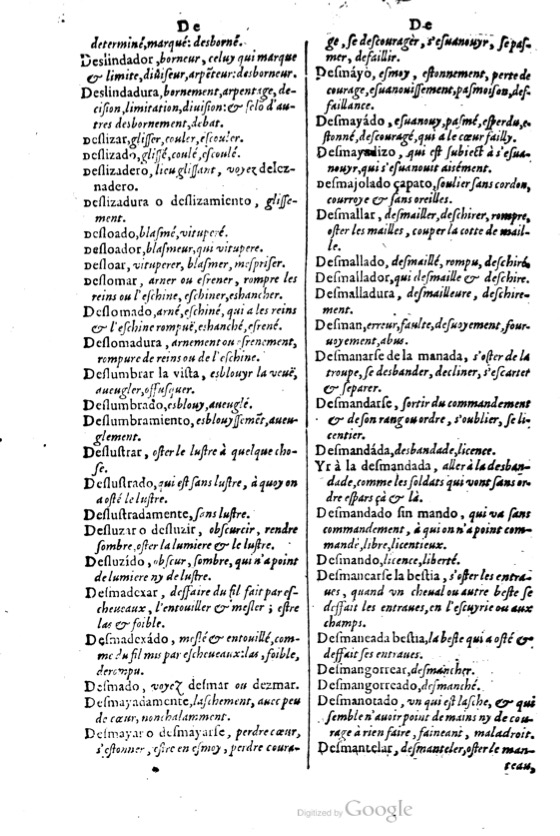 De
determiné, marqué: desborné.
Deslindador, borneur, celuy qui marque
& limite, diuiseur, arpéteur: desborneur.
Deslindadura, bornement, arpentage, de-
cision, limitation, diuision: & selō d'au-
tres desbornement, debat.
Deslizar, glisser, couler, escouler.
Deslizado, glissé, coulé, escoulé.
Deslizadero, lieu glissant, voyez delez-
nadero.
Deslizadura o deslizamiento, glisse-
ment.
Desloado, blasmé, vituperé.
Desloador, blasmeur, qui vitupere.
Desloar, vituperer, blasmer, mespriser.
Deslomar, arner ou esrener, rompre les
reins ou l'eschine, eschiner, eshancher.
Deslomado, arné, eschiné, qui a les reins
& l'eschine rompuë, eshanché, esrené.
Deslomadura, arnement ou esrenement,
rompure de reins ou de l'eschine.
Deslumbrar la vista, esblouyr la veuë,
aueugler, offusquer.
Deslumbrado, esblouy, aueuglé.
Deslumbramiento, esblouyssemēt, aueu-
glement.
Deslustrar, oster le lustre à quelque cho-
se.
Deslustrado, qui est sans lustre, à quoy on
a osté le lustre.
Deslustradamente, sans lustre.
Desluzar o desluzir, obscurcir, rendre
sombre, oster la lumiere & le lustre.
Desluzido, obscur, sombre, qui n'a point
de lumiere ny de lustre.
Desmadexar, deffaire du fil fait par es-
cheueaux, l'entouiller & mesler; estre
las & foible.
Desmadexádo, meslé & entouillé, com-
me du fil mis par escheueaux: las, foible,
derompu.
Desmado, voyez desmar ou dezmar.
Desmayadamente, laschement, auec peu
de cœur, nonchalamment.
Desmayar o desmayarse, perdre cœur,
s'estonner, estre en esmoy, perdre coura-
De
ge, se descourager, s'esuanouyr, se pas-
mer, defaillir.
Desmáyo, esmoy, estonnement, perte de
courage, esuanouissement, pasmoison, def-
faillance.
Desmayádo, esuanouy, pasmé, esperdu, e-
stonné, descouragé, qui a le cœur failly.
Desmayadizo, qui est subiect à s'esua-
nouyr, qui s'esuanouit aisément.
Desmajolado çapato, soulier sans cordon,
courroye & sans oreilles.
Desmallar, desmailler, deschirer, rompre,
oster les mailles, couper la cotte de mail-
le.
Desmallado, desmaillé, rompu, deschiré.
Desmallador, qui desmaille & deschire.
Desmalladura, desmailleure, deschire-
ment.
Desman, erreur, faulte, desuoyement, four-
uoyement, abus.
Desmanarse de la manada, s'oster de la
troupe, se desbander, decliner, s'escarter
& separer.
Desmandarse, sortir du commandement
& de son rang ou ordre, s'oublier, se li-
centier.
Desmandáda, desbandade, licence.
Yr à la desmandada, aller à la desban-
dade, comme les soldats qui vont sans or-
dre espars çà & là.
Desmandado sin mando, qui va sans
commandement, à qui on n'a point com-
mandé, libre, licentieux.
Desmando, licence, liberté.
Desmancarse la bestia, s'oster les entra-
ues, quand vn cheual ou autre beste se
deffait les entraues, en l'escuyrie ou aux
champs.
Desmancada bestia, la beste qui a osté &
deffait ses entraues.
Desmangorrear, desmancher.
Desmangorreado, desmanché.
Desmanotado, vn qui est lasche, & qui
semble n'auoir point de mains ny de cou-
rage à rien faire, faineant, maladroit.
Desmantelar, desmanteler, oster le man-
teau,
Digitized by Google